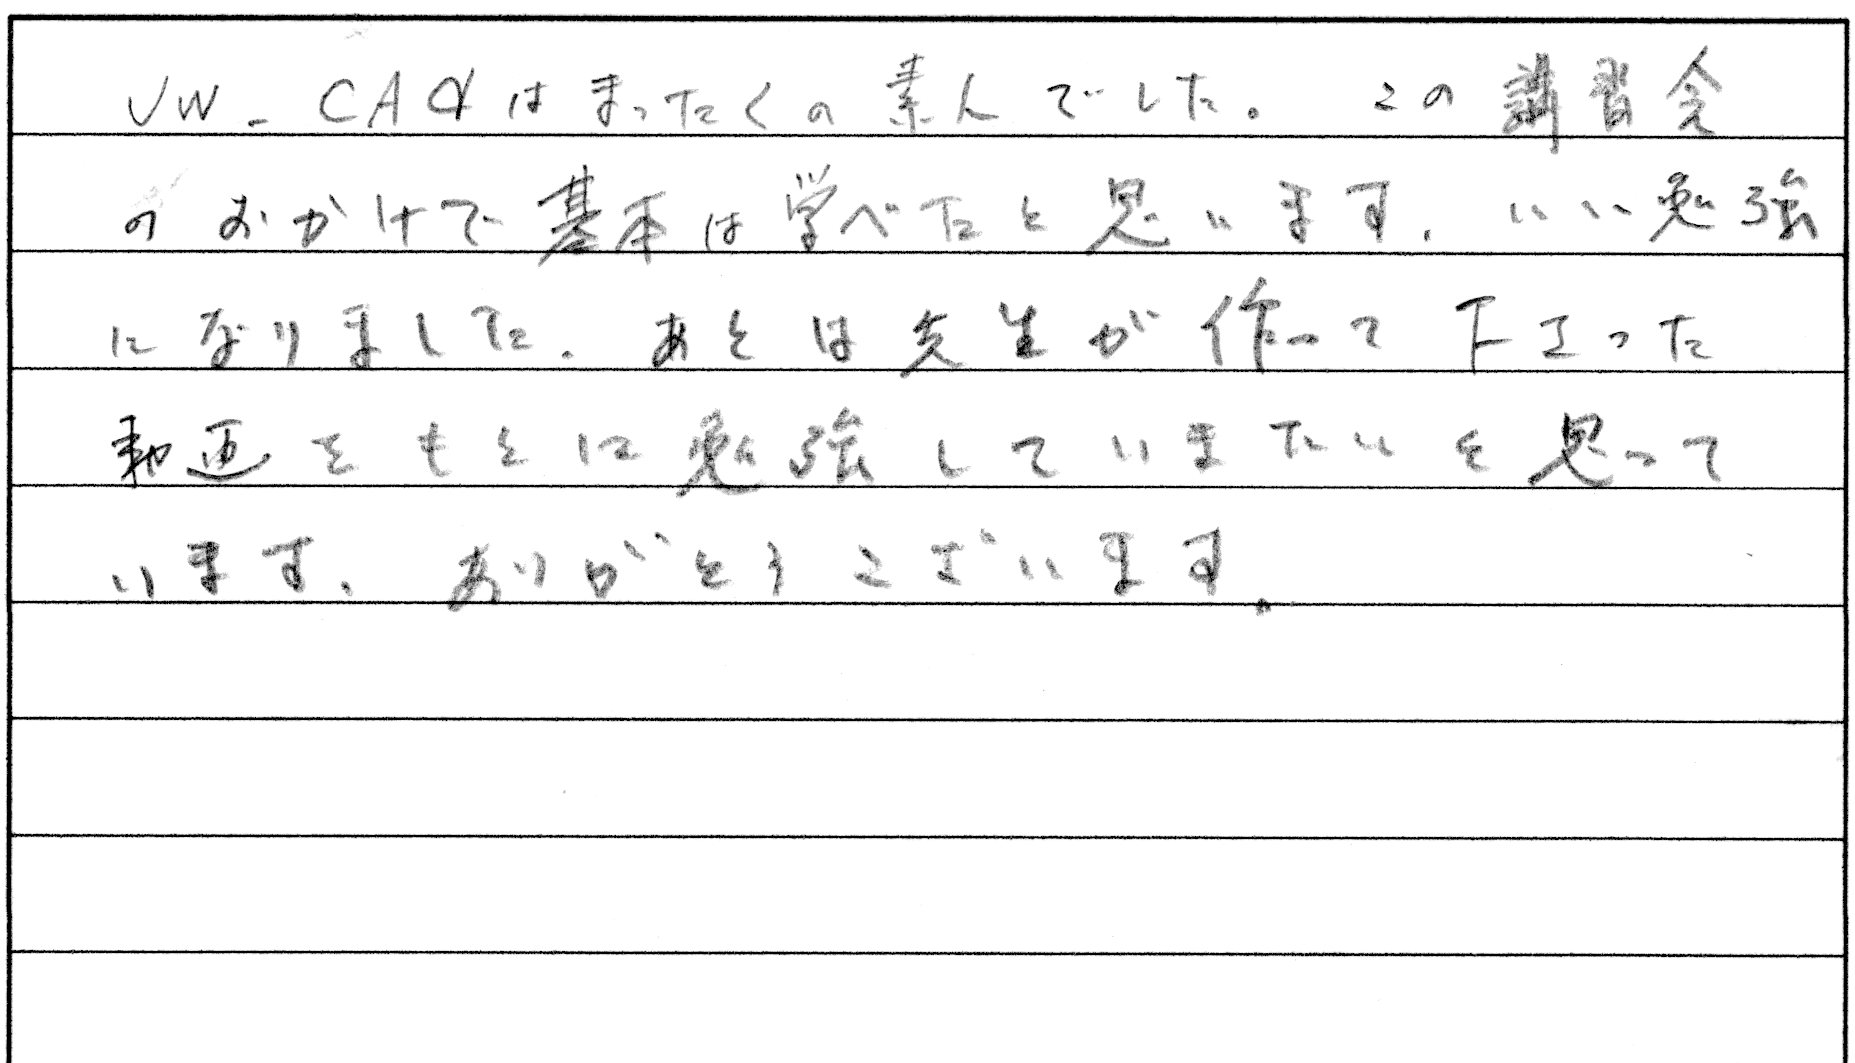 JW-CADはまったくの素人でした。この講習会
のおかけで基本は学べたと思います。いい勉強
になりました。あとは先生が作って下さった
動画をもとに勉強していまたいと思って
います。ありがとうございます。